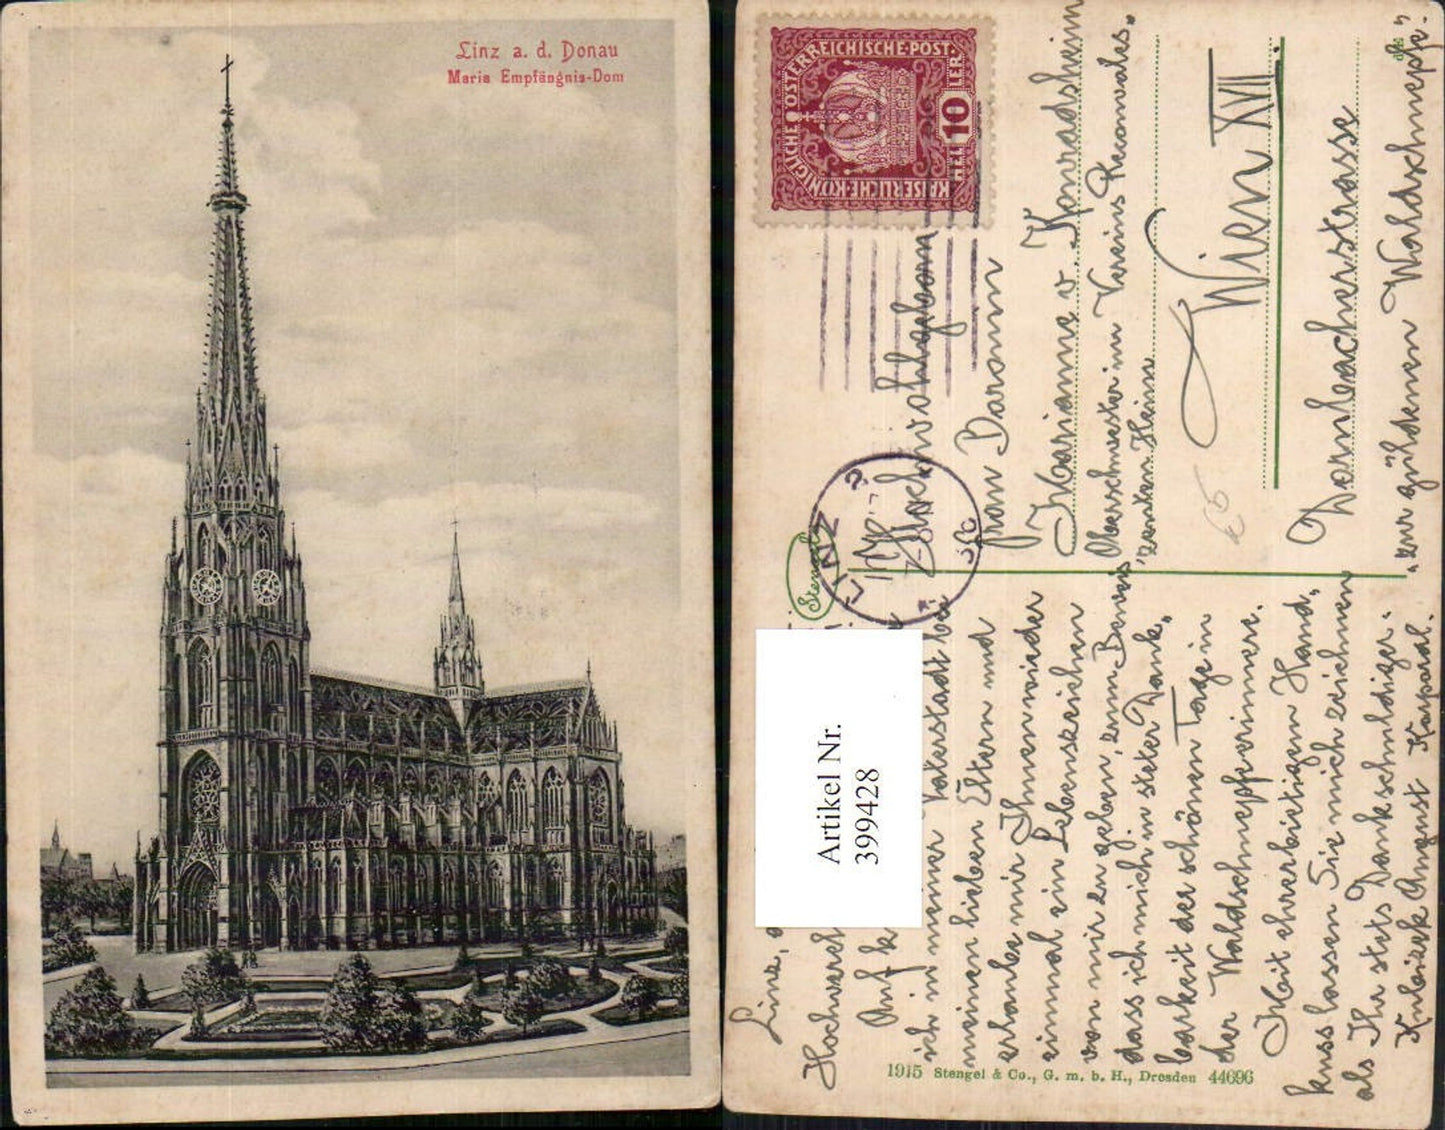 Linz a. d. Donau
Maria Empfängnis-Dom
KAISERLICHE·KÖNIGLICHE ÖSTERREICHISCHE·POST·
HELLER 10
LINZ
Stengel
Hochwohlgeboren
Frau Baronin
Marianne v. Konradsheim
Oberschwester im Vereins Reconvales„
„zenten Heim
Wien XVII.
Dornbacherstrasse
„zur güldenen Waldschnepfe“
Artikel Nr.
399428
Linz,
Hochwersch
Auf
ich in meiner Vaterstadt bei
meinen lieben Eltern und
erlaube mir Ihnen wieder
einmal ein Lebenszeichen
von mir zu geben, zum Beweis
dass ich mich in steter Dank„
barkeit der schönen Tage in
der Waldschnepfe erinnere.
Mit ehrerbietigem Hand„
kuss lassen Sie mich zeichnen
als Ihr stets Dankschuldiger.
August Korporal.
1915 Stengel & Co., G. m. b. H., Dresden 44696